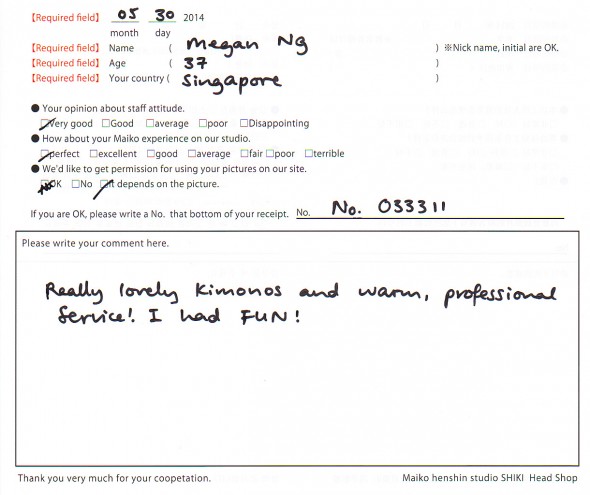 【Required field】 05 30 2014
month day
【Required field】 Name ( Megan Ng ) ※Nick name, initial are OK.
【Required field】 Age ( 37 )
【Required field】 Your country ( Singapore )
● Your opinion about staff attitude.
□Very good □Good □average □poor □Disappointing
● How about your Maiko experience on our studio.
□perfect □excellent □good □average □fair □poor □terrible
● We'd like to get permission for using your pictures on our site.
□OK □No □It depends on the picture.
If you are OK, please write a No. that bottom of your receipt. No. No. 033311
Please write your comment here.
Really lovely Kimonos and warm, professional
Service! I had FUN!
Thank you very much for your coopetation. Maiko henshin studio SHIKI Head Shop